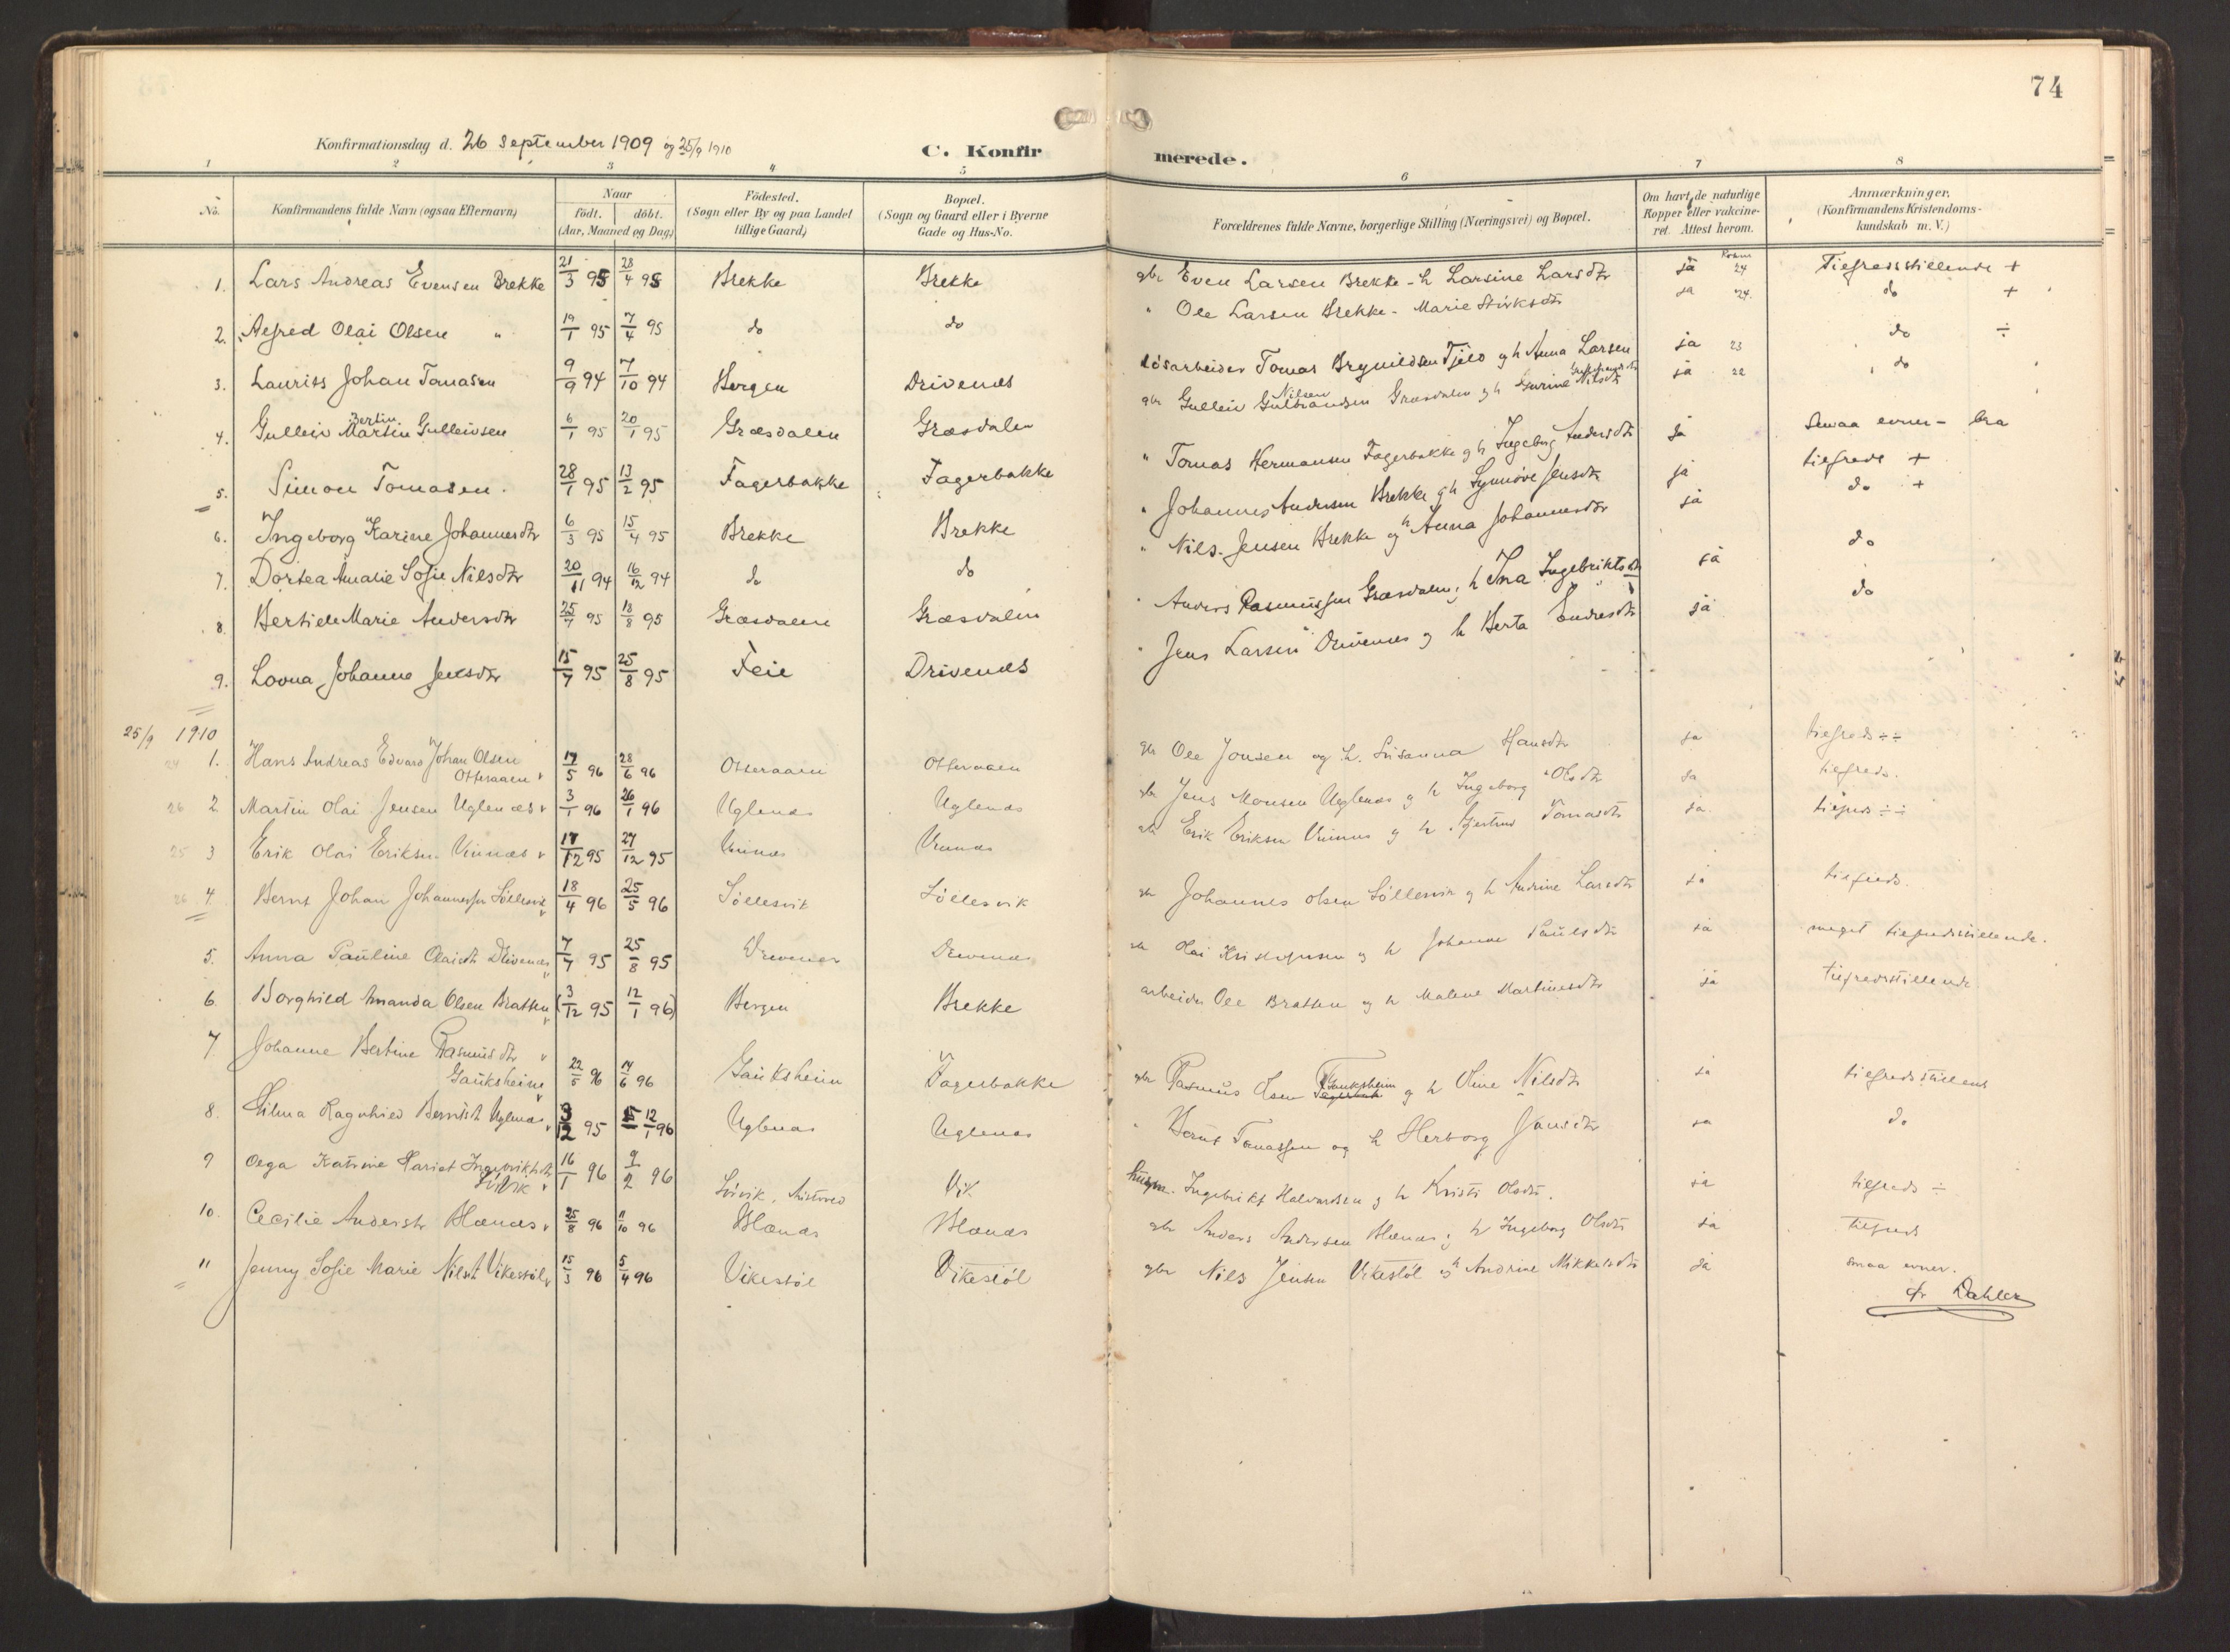 74
Konfirmationsdag d. 26 September 1909 og 25/9 1910
C. Konfirmerede.
1 2 3 4 5 6 7 8
No. Konfirmandens fulde Navn (ogsaa Efternavn) Naar født. døbt. (Aar, Maaned og Dag) Födested. (Sogn eller By og paa Landet tillige Gaard) Bopæl. (Sogn og Gaard eller i Byerne Gade og Hus-No. Forældrenes fulde Navne, borgerlige Stilling (Næringsvei) og Bopæl. Om havt de naturlige Kopper eller vakcineret. Attest herom. Anmærkninger. (Konfirmandens Kristendomskundskab m. V.)
1. Lars Andreas Evensen Brekke 21/3 95 28/4 95 Brekke Brekke gbr Even Larsen Brekke - h Larsine Larsdtr ja 24 Tilfredsstillende +
2. Alfred Olai Olsen " 19/1 95 7/4 95 do do " Ole Larsen Brekke - Marie Stirksdtr ja 24. do +
3. Lauriss Johan Tomasen 9/9 94 7/10 94 Bergen Drivenes løsarbeider Tomas Brynildsen Tjelo og h Anna Larsen ja 23 do ÷
4. Gulleiv Bertin Martin Gulleivsen 6/1 95 20/1 95 Græsdalen Græsdalen gbr Gulleiv Nilsen Gulbrandsen Græsdalen og h Gurine Nilsdtr ja 22 do
5. Simon Tomasen. 28/1 95 13/2 95 Fagerbakke Fagerbakke " Tomas Hermansen Fagerbakke og h Ingeborg Andersdtr ja smaa evner - bra
6. Ingeborg Karine Johannesdtr 6/3 95 15/4 95 Brekke Brekke " Johannes Andersen Brekke og h Synnöve Jensdtr ja tilfreds +
7. Dortea Amalie Sofie Nilsdtr 20/11 94 16/12 94 do do " Nils Jensen Brekke og h Anna Johannesdtr ja do +
8. Bertine Marie Andersdtr 25/7 95 18/8 95 Græsdalen Græsdalen " Anders Rasmussen Græsdalen, h Ina Ingebriktsdtr ja do
9. Lovna Johanne Jensdtr 15/7 95 25/8 95 Feie Drivenes " Jens Larsen Drivenes og h Berta Endresdtr ja do
25/9 1910
24 1. Hans Andreas Edvard Johan Olsen
Otteraaen 17/5 96 28/6 96 Otteraaen Otteraaen gbr Ole Jonsen og h. Susanna Hansdtr ja tilfreds ÷÷
26 2 Martin Olai Jensen Uglenæs 3/1 96 26/1 96 Uglenæs Uglenæs gbr Jens Monsen Uglenæs og h Ingeborg Olsdtr ja tilfreds.
25 3 Erik Olai Eriksen Vinnæs 17/12 95 27/12 95 Vinnæs Vinnæs gbr Erik Eriksen Vinnæs og h Gjertrud Tomasdtr ja tilfreds ÷÷
26 4. Bernt Johan Johannessen Söllesvik 18/4 96 25/5 96 Söllesvik Söllesvik gbr Johannes Olsen Söllesvik og h Andrine Larsdtr ja tilfreds.
5. Anna Pauline Olaisdtr Drivenes 7/7 95 25/8 95 Drivenes Drivenes gbr Olai Kristofersen og h Johanne Paulsdtr ja meget tilfredsstillende.
6. Borghild Amanda Olsen Bratten (3/12 95 12/1 96) Bergen Brekke arbeider Ole Bratten og h Malene Martinusdtr ja tilfredsstillende
7 Johanne Bertine Rasmusdtr
Gauksheim 22/5 96 14/6 96 Gauksheim Fagerbakke gbr Rasmus Olsen Gauksheim Fagerbak og h Oline Nilsdtr ja tilfredsstillende
8. Hilma Ragnhild Berntsdt Uglenæs 3/12 95 12/1 96 Uglenæs Uglenæs " Bernt Tomassen og h Herborg Jansdtr ja do
9 Olga Katrine Hariet Ingebriktsdtr
Lövik 16/1 96 9/2 96 Lövik, Austreo Vik husm. Ingebrikt Halvardsen og h Kristi Olsdtr. ja tilfreds ÷
10. Cecilie Andersdtr Blænæs 25/8 96 11/10 96 Blænæs Blænæs gbr Anders Andersen Blænæs, h Ingeborg Olsdtr ja tilfreds
11 Jenny Sofie Marie Nilsdt Vikestöl 15/3 96 5/4 96 Vikestöl Vikestöl gbr Nils Jensen Vikestöl og h Andrine Mikkelsdtr ja smaa evner.
Fr Dahler